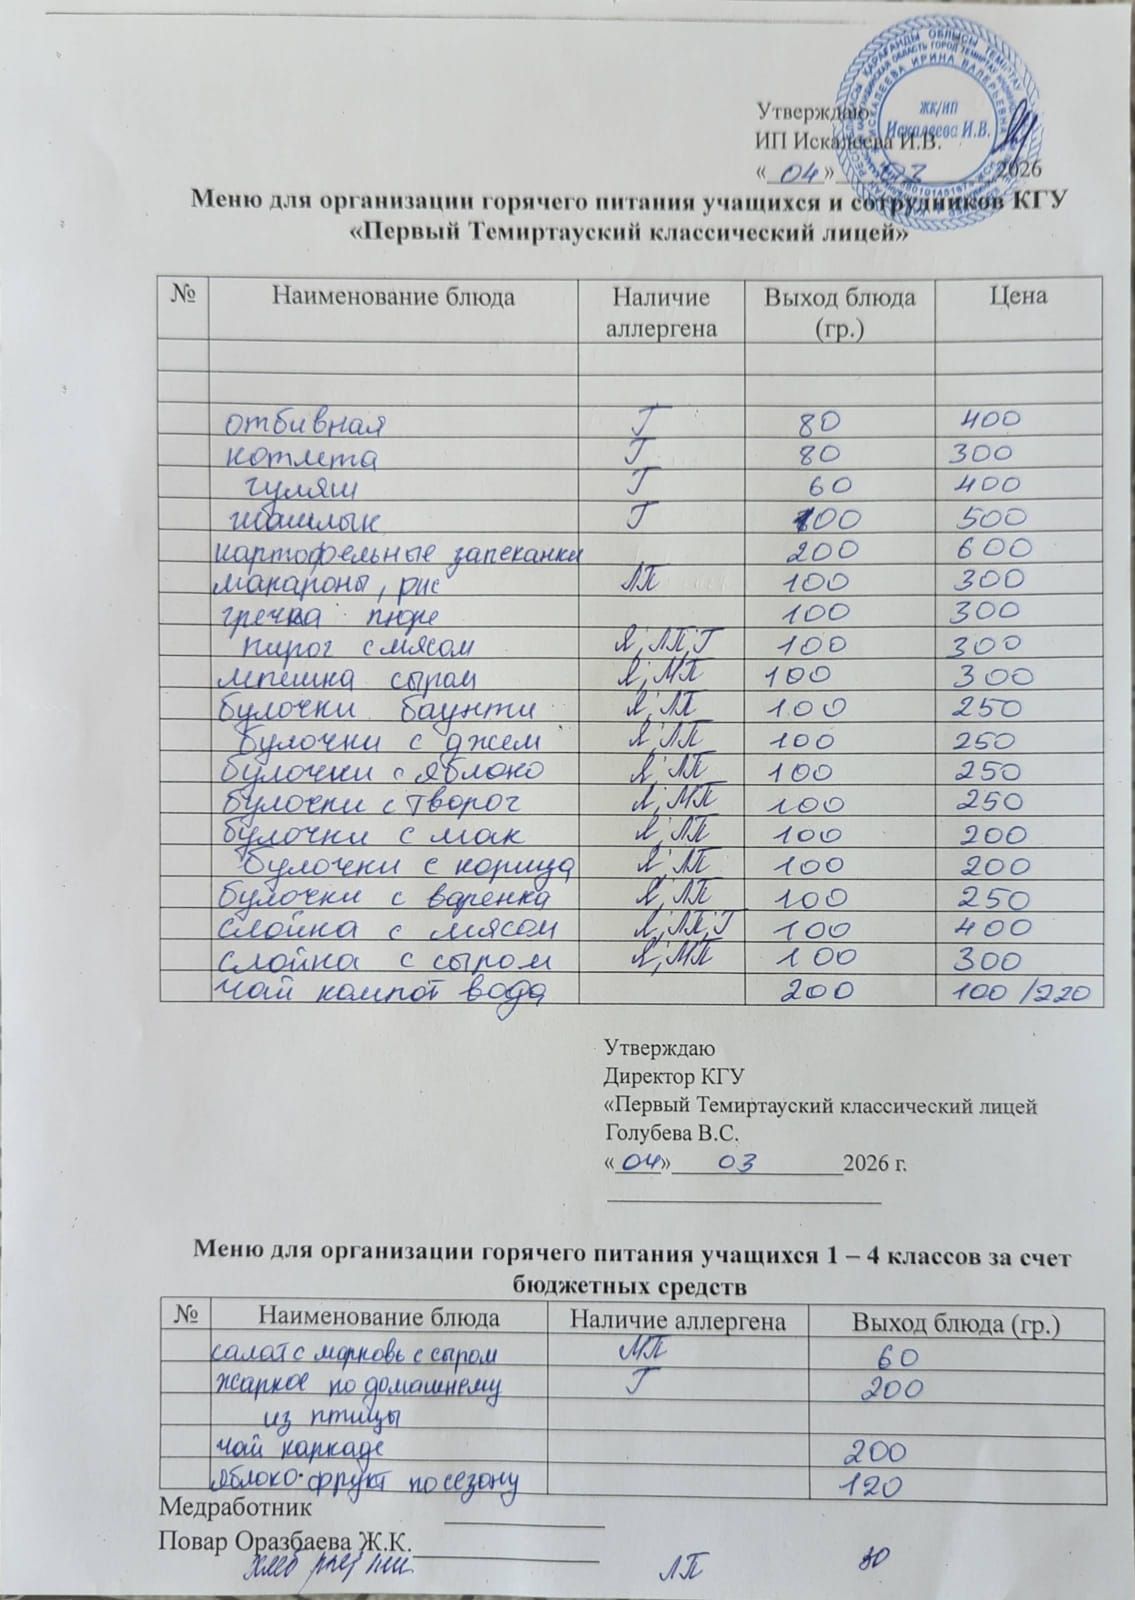 Утверждаю
ИП Искалеева И.В.
ЖК/ИП
Искалеева И.В.
«04» 03 2026
Меню для организации горячего питания учащихся и сотрудников КГУ
«Первый Темиртауский классический лицей»
№ Наименование блюда Наличие аллергена Выход блюда (гр.) Цена
отбивная Г 80 400
котлета Г 80 300
гуляш Г 60 400
шашлык Г 100 500
картофельные запеканки 200 600
макароны, рис ЛП 100 300
гречка пюре 100 300
пирог с мясом Я, ЛП, Г 100 300
лепешка сыром Я, МП 100 300
булочки баунти Я, ЛП 100 250
булочки с джем Я, ЛП 100 250
булочки с яблоко Я, ЛП 100 250
булочки с творог Я, МП 100 250
булочки с мак Я, ЛП 100 200
булочки с корица Я, ЛП 100 200
булочки с варенка Я, ЛП 100 250
слойка с мясом Я, ЛП, Г 100 400
слойка с сыром Я, МП 100 300
чай компот вода 200 100/220
Утверждаю
Директор КГУ
«Первый Темиртауский классический лицей
Голубева В.С.
«04» 03 2026 г.
Меню для организации горячего питания учащихся 1 – 4 классов за счет
бюджетных средств
№ Наименование блюда Наличие аллергена Выход блюда (гр.)
салат с морковь с сыром МП 60
жаркое по домашнему Г 200
из птицы
чай каркаде 200
яблоко-фрукт по сезону 120
Медработник
Повар Оразбаева Ж.К.
хлеб ЛП 30